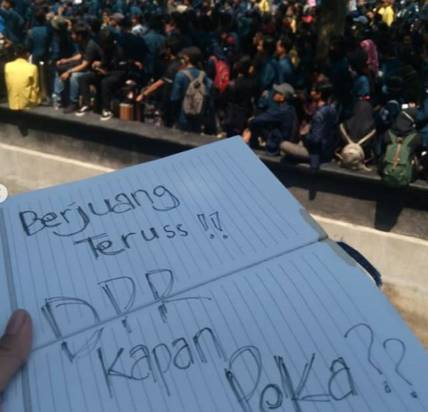 Berjuang
Teruss !!
DPR
Kapan
Peka??